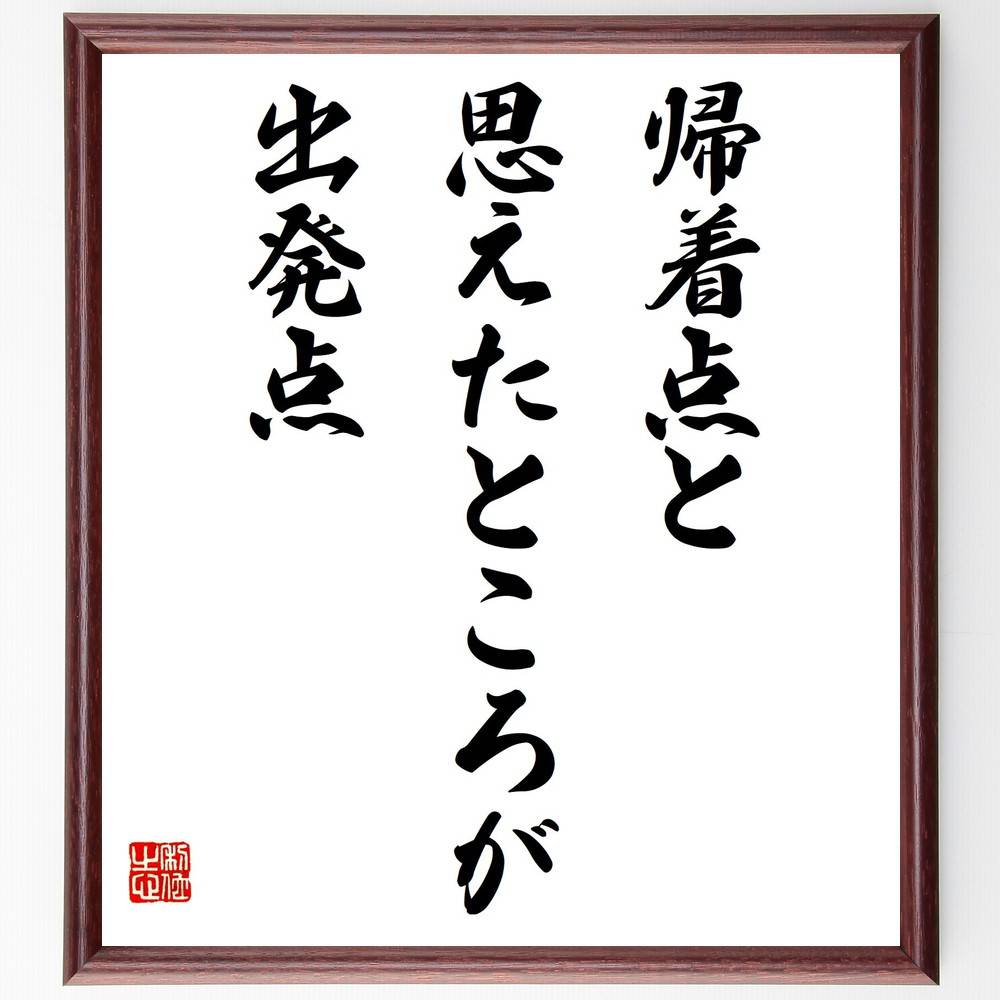 帰着点と
思えたところが
出発点